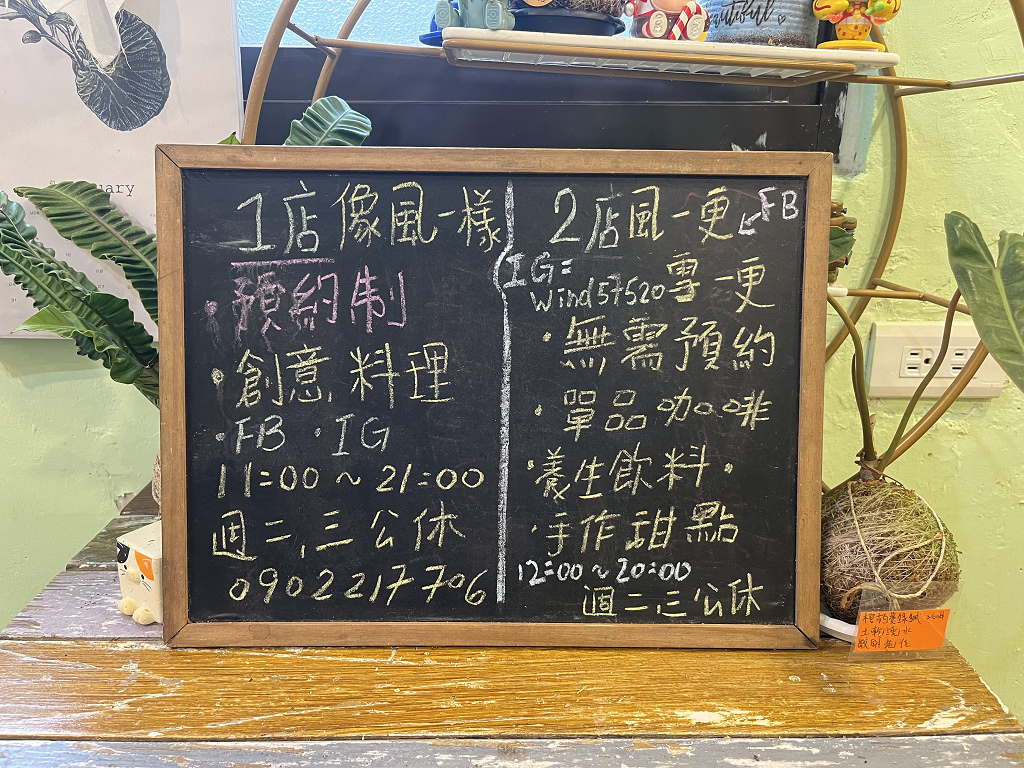 1店像風一樣
·預約制
·創意料理
·FB ·IG
11:00~21:00
週二,三公休
0902217706
2店風一更
FB
IG:
wind57520
雪一更
·無需預約
·單品咖啡
·養生飲料·
·手作甜點
12:00~20:00
週二,三公休
beautiful
uary